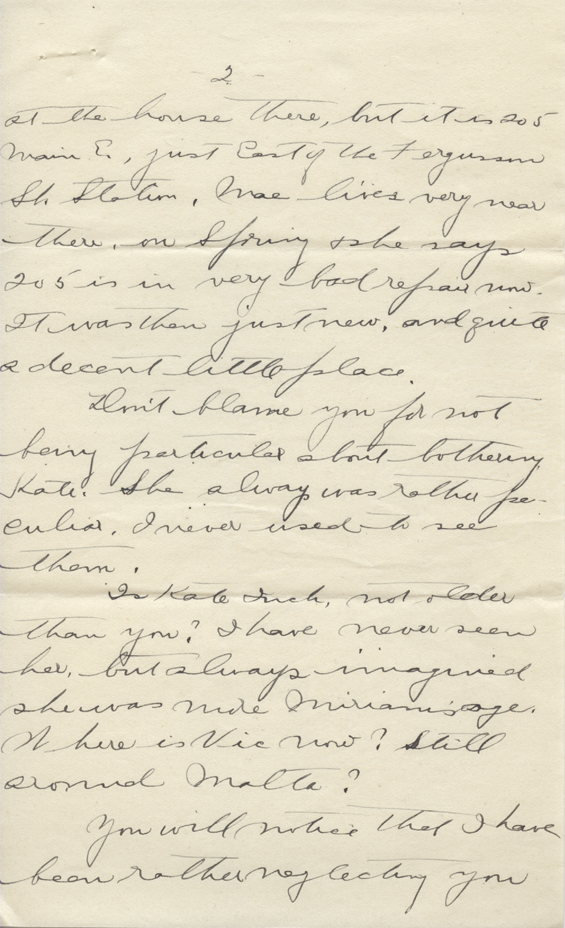 2
at the house there, but it is 205
Main E., just East of the Fergusson
St. Station. Mae lives very near
there, on Spring & she says
205 is in very bad repair now.
It was then just new, and quite
a decent little place.
Don't blame you for not
being particular about bothering
Kate. She always was rather pe-
culiar. I never used to see
them.
Is Kate not older
than you? I have never seen
her, but always imagined
she was more Miriam's age.
Where is Vic now? Still
around Malta?
You will notice that I have
been rather neglecting you